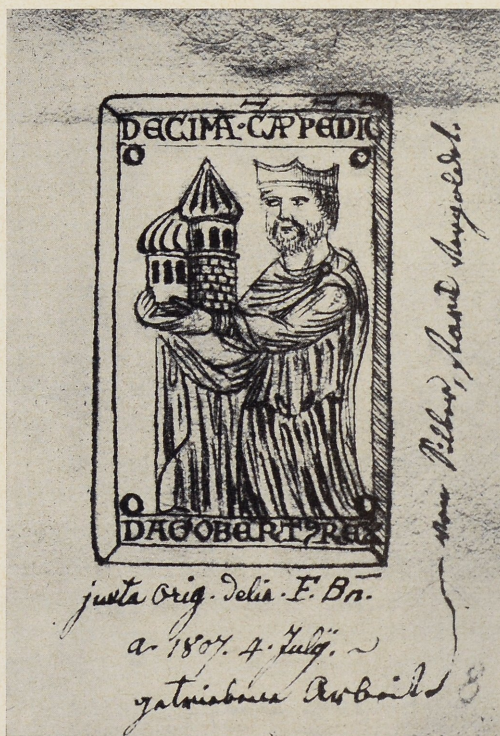 DECIMA·CAPEDIC
DAGOBERTꝰREX
juxta orig. delin. F. Bn̄.
a. 1807. 4. Julÿ. ~
getriebene Arbeit
von Silber, stark vergoldet.
8